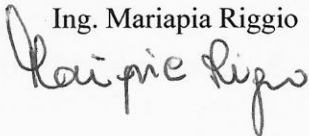 Ing. Mariapia Riggio
Mariapia Riggio